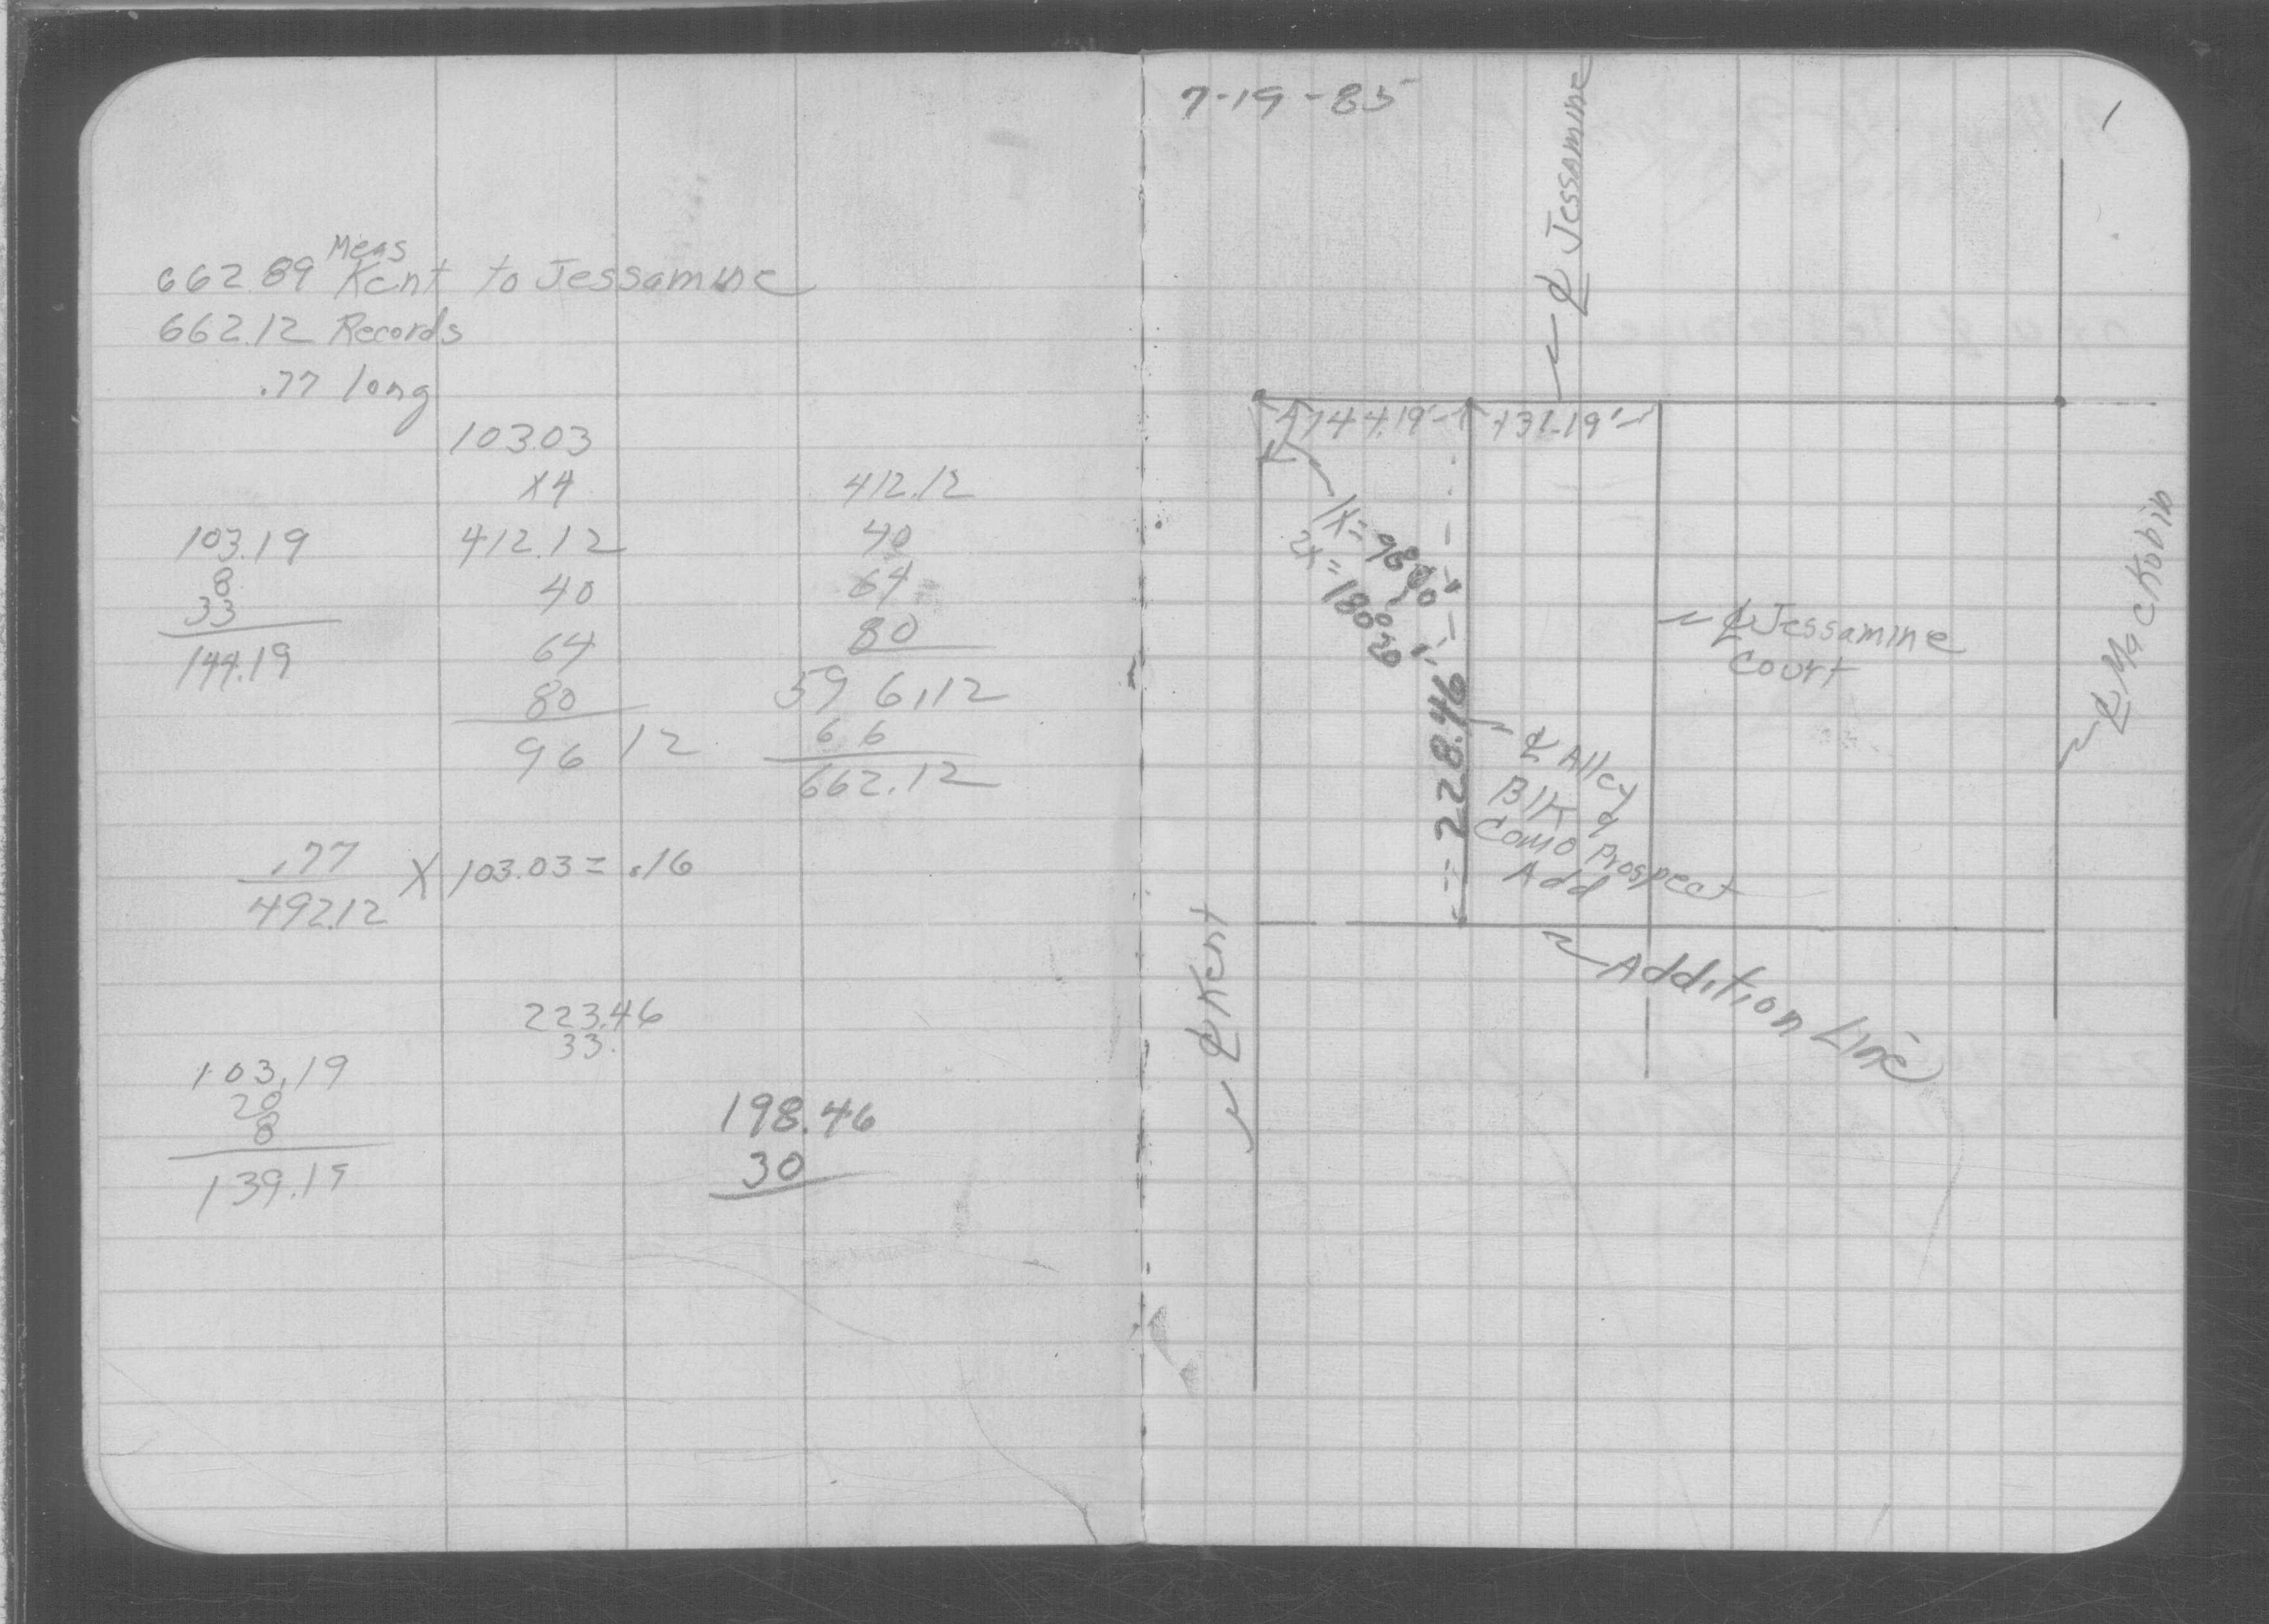 662.89 Meas Kent to Jessamine
662.12 Records
.77 long
103.03
x4
412.12
40
64
80
96 12
412.12
40
64
80
596.12
66
662.12
103.19
8
33
144.19
.77
492.12
X 103.03 = .16
223.46
33.
103.19
20
8
139.19
198.46
30
7-19-85
1
℄ Jessamine
144.19'
131.19'
1X=
2X=
228.46
℄ Jessamine
Court
℄ Mackubin
℄ Alley
Blk
Como Prospect
Add
℄ Kent
Addition Line